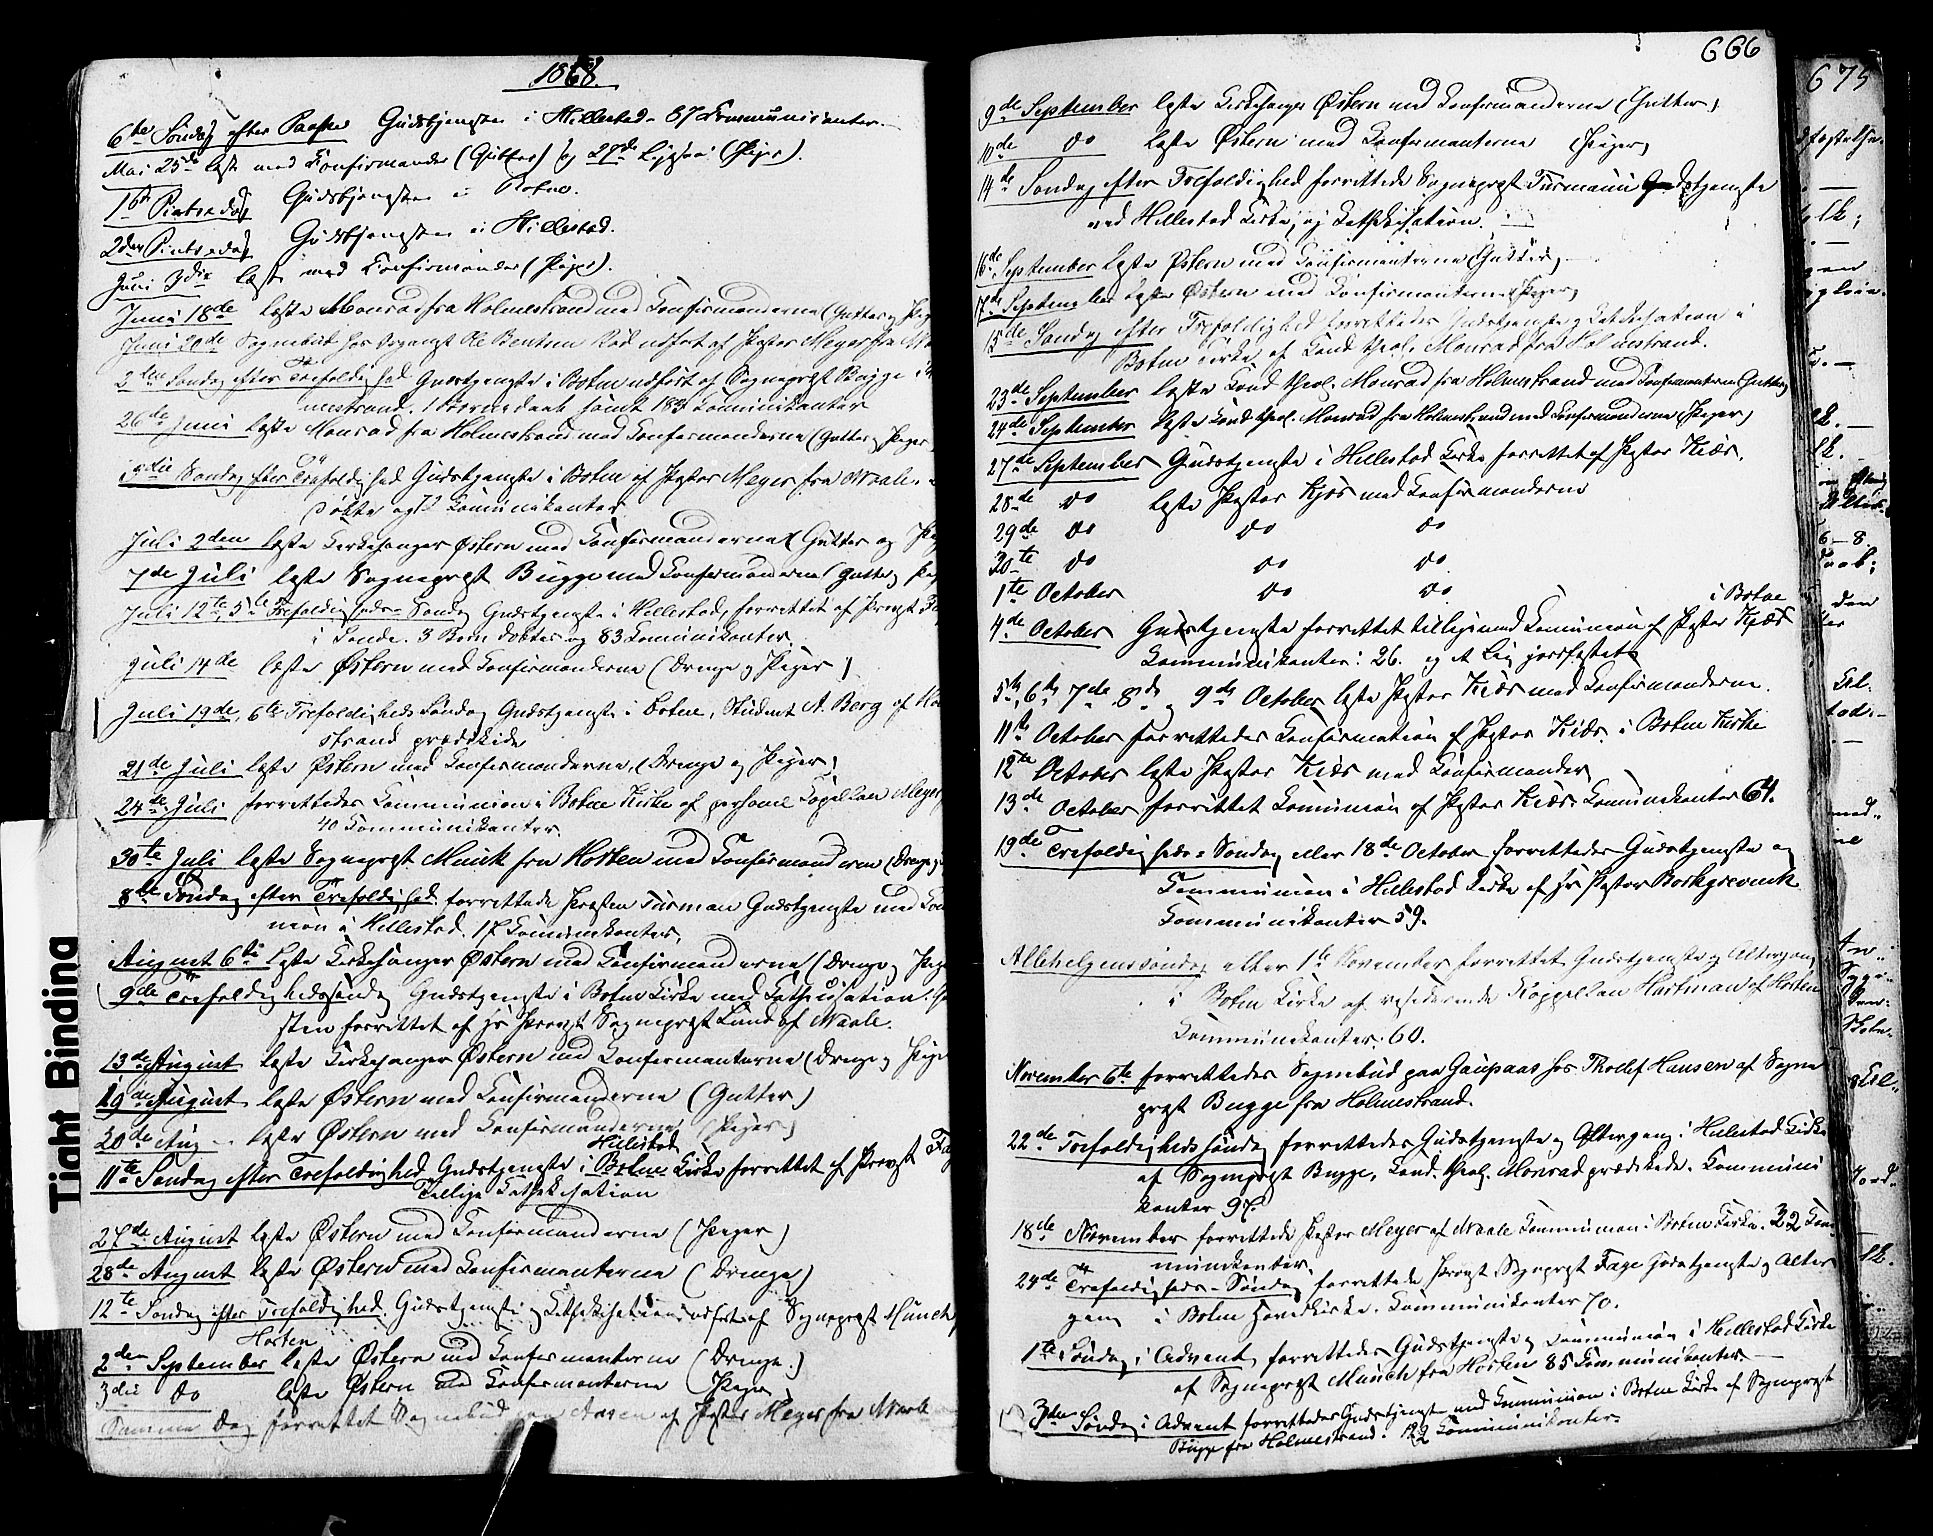 1868.
6te Søndag efter Paaske Gudstjenste i Hillestad - 67 Communicanter.
Mai 25de læste med Confirmander (Gutter) og 27de Ligesaa (Piger).
1ste Pintsedag Gudstjenste i Botne.
2den Pintsedag Gudstjenste i Hillestad.
Juni 3die læste med Confirmander (Piger).
Juni 18de læste Monrad fra Holmestrand med Confirmanderne (Gutter og Pig
Juni 20de Sognebud hos Ole udført af Pastor Meyer fra
2den Søndag efter Trefoldighed Gudstjenste i Botne udført af Sogneprest Bugge i
mestrand. 1 Barn døbt samt 18 Kommunikanter
26de Juni læste Monrad fra Holmestrand med Confirmanderne (Gutter og Piger
Søndag efter Trefoldighed Gudstjenste i Botne af Pastor Meyer fra Waale.
døbte og Kommunikanter
Juli 2den læste Kirkesanger Østern med Confirmanderne (Gutter og Pig
7de Juli læste Sogneprest Bugge med Confirmanderne (Gutter og Pig
Juli 12te, 5te Trefoldigheds-Søndag Gudstjenste i Hillestad, forrettet af Provst
i Sande. 3 Børn døbtes og 83 Kommunikanter
Juli 14de læste Østern med Confirmanderne (Drenge og Piger)
Juli 19de, 6te Trefoldigheds Søndag Gudstjenste i Botne, Student A. Berg af Hol
strand prædikede
21de Juli læste Østern med Confirmanderne, (Drenge og Piger)
24de Juli forrettedes Kommunion i Botne Kirke af personel Capellan Meyer
40 Kommunikanter.
30te Juli læste Sogneprest Munk fra Horten med Confirmanderne (Drenge
8de Søndag efter Trefoldighed forrettede Presten Furman Gudstjenste med Kom
nion i Hillestad. 17 Kommunikanter.
August 6te læste Kirkesanger Østern med Confirmanderne (Drenge Pige
9de Trefoldighedssøndag Gudstjenste i Botne Kirke med Cathekisation
sten forrettet af Hr Provst Sogneprest Lund af Waale.
13de August læste Kirkesanger Østern med Confirmanterne (Drenge og Pige
19de August læste Østern med Confirmanderne (Gutter)
20de Aug læste Østern med Confirmanderne (Piger)
Hillestad
11te Søndag efter Trefoldighed Gudstjenste i Botne Kirke forrettet af Provst Fag
Tillige Cathekisation
27de August læste Østern med Confirmanderne (Piger)
28de August læste Østern med Confirmanterne (Drenge)
12te Søndag efter Trefoldighed Gudstjenste og Cathekisation udført af Sogneprest Münch,
Horten
2den September læste Østern med Confirmanterne (Drenge.)
3die do læste Østern med Confirmanterne (Piger
Samme Dag forrettet Sognebud paa Aasen af Pastor Meyer fra Waale
666
9de September læste Kirkesanger Østern med Confirmanderne (Gutter)
10de do læste Østern med Confirmanterne (Piger)
14de Søndag efter Trefoldighed forrettede Sogneprest Furmann Gudstjenste
ved Hillestad Kirke, og Cathekisation.
16de September læste Østern med Confirmanterne (Gutter)
17de September læste Østern med Confirmanterne (Piger)
15de Søndag efter Trefoldighed forrettedes Gudstjenste og Cathekisation i
Botne Kirke af Cand theol. Monrad fra Holmestrand.
23de September læste Cand theol. Monrad fra Holmestrand med Confirmanterne (Gutter)
24de September læste Cand theol. Monrad fra Holmestrand med Confirmanderne (Piger)
27de September Gudstjenste i Hillestad Kirke forrettet af Pastor Kiær.
28de do læste Pastor Kjær med Confirmanderne
29de do do do
30te do do do
1te October do do
i Botne
4de October Gudstjenste forrettet tilligemed Communion af Pastor Kjær
Kommunikanter: 26. og et Lig jordfæstet
5te, 6te, 7de, 8de og 9de October læste Pastor Kiær med Confirmanderne.
11te October forrettedes Confirmation af Pastor Kiær. i Botne Kirke
12te October læste Pastor Kiær med Confirmander
13de October forrettet Communion af Pastor Kiær. Kommunikanter 64.
19de Trefoldigheds=Søndag eller 18de October forrettedes Gudstjenste og
Communion i Hillestad Kirke af Hr Pastor Borkgrevink
Communikanter 59.
Allehelgenssøndag eller 1te November forrettet Gudstjenste og Altergang
i Botne Kirke af residerende Kappellan Hartman af Horten
Communikanter: 60.
November 6te forrettedes Sognebud paa Gaupaas hos Tholef Hansen af Sogne
prest Bugge fra Holmestrand.
22de Trefoldigheds Søndag forrettedes Gudstjenste og Altergang i Hillestad Kirke
af Sogneprest Bugge, Cand. theol. Monrad prædikede. Communi
kanter 97.
18de November forrettede Pastor Meyer af Waale Communion i Botne Kirke. 32 Com
munikanter.
24de Trefoldigheds-Søndag forrettede Provst, Sogneprest Fage Gudstjenste og Alter
gang i Botne Hovedkirke. Communikanter 70.
1te Søndag i Advent forrettedes Gudstjenste og Communion i Hillestad Kirke
af Sogneprest Münch, fra Horten 85 Communikanter.
3die Søndag i Advent forrettedes Gudstjenste med Communion i Botne Kirke af Sogneprest
Bugge fra Holmestrand. 122 Communikanter.
675
Tight Binding